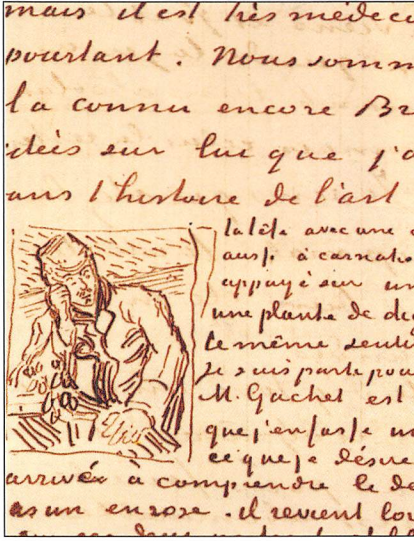 mais il est très médeci
pourtant. Nous somm
la connu encore Br
idées sur lui que j'a
ans l'histoire de l'art
la tête avec une c
aussi à carnati
appuyé sur un
une plante de di
le même senti
je suis parti pou
M. Gachet est
que j'en fasse un
ce que je désire
arrivé à comprendre le de
as un en rose. il revient lor